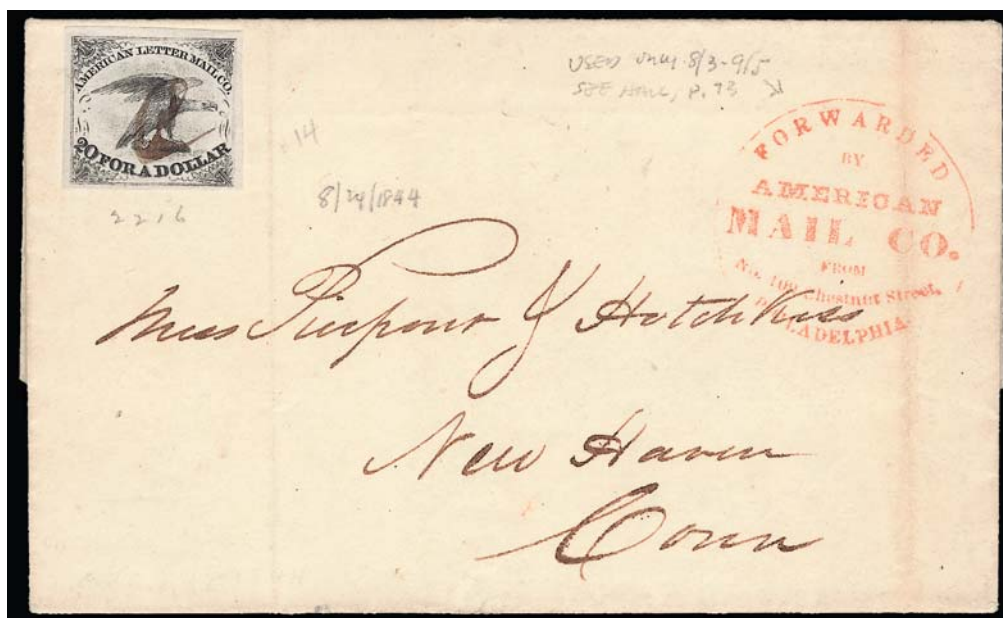 AMERICAN LETTER MAIL CO.
20 FOR A DOLLAR
USED only 8/3-9/5
SEE HALL, P. 73
FORWARDED
BY
AMERICAN
MAIL CO.
FROM
No. 109 Chestnut Street,
PHILADELPHIA
14
8/29/1844
2216
Mess Pierpont & Hotchkiss
New Haven
Conn